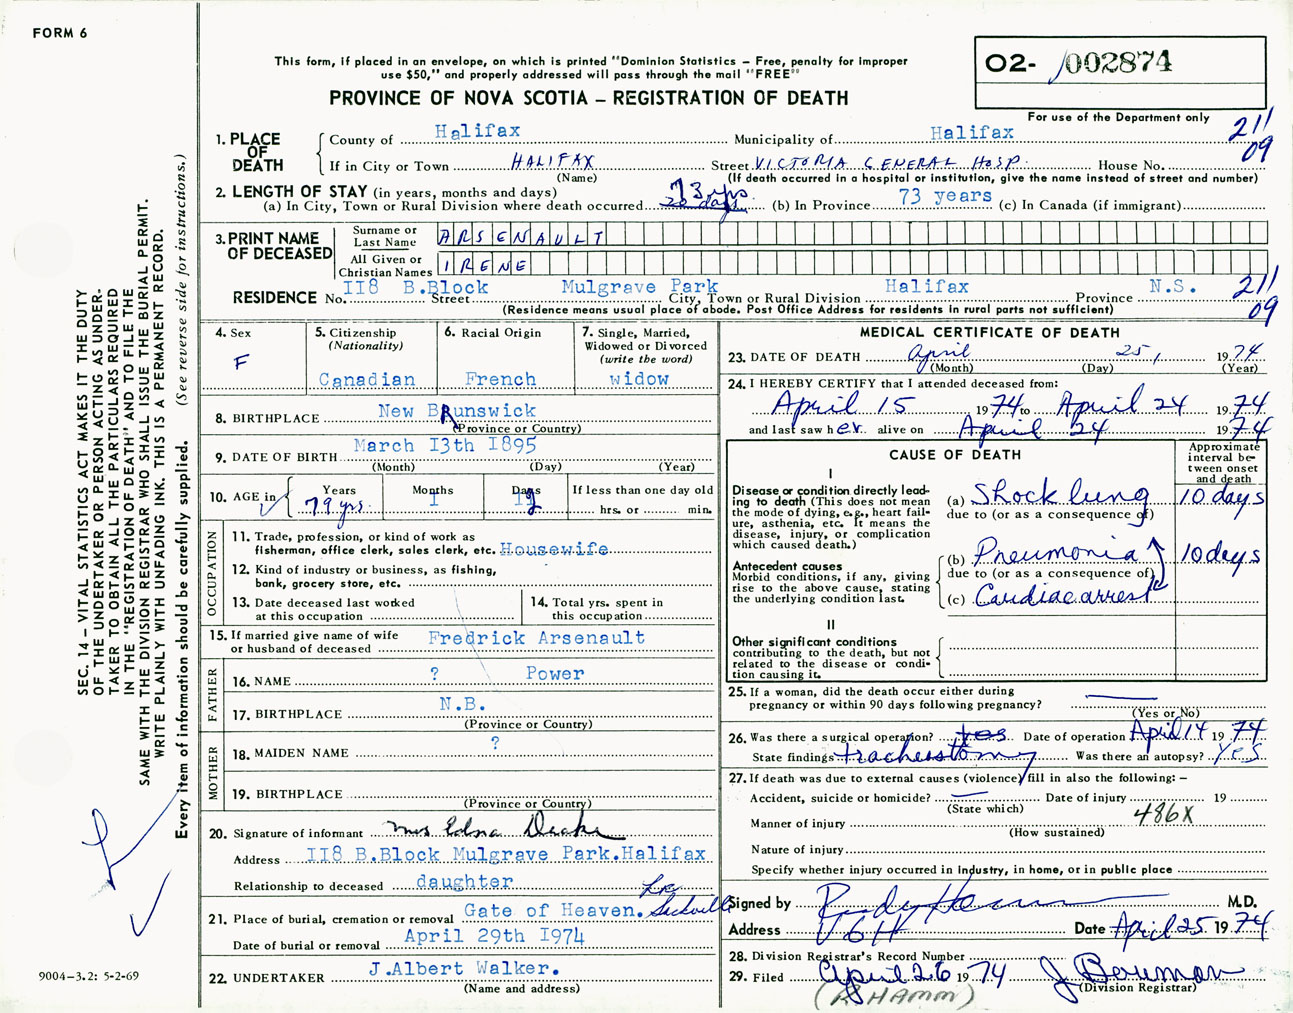 FORM 6
This form, if placed in an envelope, on which is printed "Dominion Statistics – Free, penalty for improper
use $50," and properly addressed will pass through the mail "FREE"
PROVINCE OF NOVA SCOTIA – REGISTRATION OF DEATH
02- 002874
For use of the Department only
211
09
1. PLACE OF DEATH
County of Halifax Municipality of Halifax
If in City or Town HALIFAX Street VICTORIA GENERAL HOSP. House No.
(Name) (If death occurred in a hospital or institution, give the name instead of street and number)
2. LENGTH OF STAY (in years, months and days)
(a) In City, Town or Rural Division where death occurred 73 yrs. (b) In Province 73 years (c) In Canada (if immigrant)
3. PRINT NAME OF DECEASED
Surname or Last Name ARSENAULT
All Given or Christian Names IRENE
RESIDENCE No. 118 B.Block Street Mulgrave Park City, Town or Rural Division Halifax Province N.S.
(Residence means usual place of abode. Post Office Address for residents in rural parts not sufficient)
211
09
4. Sex
F
5. Citizenship
(Nationality)
Canadian
6. Racial Origin
French
7. Single, Married,
Widowed or Divorced
(write the word)
widow
8. BIRTHPLACE New BRunswick
(Province or Country)
9. DATE OF BIRTH March 13th 1895
(Month) (Day) (Year)
10. AGE in
Years
79 yrs.
Months
1
Days
12
If less than one day old
hrs. or min.
OCCUPATION
11. Trade, profession, or kind of work as
fisherman, office clerk, sales clerk, etc. Housewife
12. Kind of industry or business, as fishing,
bank, grocery store, etc.
13. Date deceased last worked
at this occupation
14. Total yrs. spent in
this occupation
15. If married give name of wife
or husband of deceased Fredrick Arsenault
FATHER
16. NAME ? Power
17. BIRTHPLACE N.B.
(Province or Country)
MOTHER
18. MAIDEN NAME ?
19. BIRTHPLACE
(Province or Country)
20. Signature of informant Mrs Edna
Address 118 B.Block Mulgrave Park.Halifax
Relationship to deceased daughter
21. Place of burial, cremation or removal Gate of Heaven. Lr. Sackville
Date of burial or removal April 29th 1974
22. UNDERTAKER J.Albert Walker.
(Name and address)
MEDICAL CERTIFICATE OF DEATH
23. DATE OF DEATH April 25, 1974
(Month) (Day) (Year)
24. I HEREBY CERTIFY that I attended deceased from:
April 15 1974 to April 24 1974
and last saw her alive on April 24 1974
CAUSE OF DEATH
Approximate
interval be-
tween onset
and death
I
Disease or condition directly lead-
ing to death (This does not mean
the mode of dying, e.g., heart fail-
ure, asthenia, etc. It means the
disease, injury, or complication
which caused death.)
(a) Shock lung 10 days
due to (or as a consequence of)
Antecedent causes
Morbid conditions, if any, giving
rise to the above cause, stating
the underlying condition last.
(b) Pneumonia 10 days
due to (or as a consequence of)
(c) Cardiac arrest
II
Other significant conditions
contributing to the death, but not
related to the disease or condi-
tion causing it.
25. If a woman, did the death occur either during
pregnancy or within 90 days following pregnancy?
(Yes or No)
26. Was there a surgical operation? yes Date of operation April 14 1974
State findings tracheostomy Was there an autopsy? Yes
27. If death was due to external causes (violence) fill in also the following: –
Accident, suicide or homicide? Date of injury 19
(State which)
Manner of injury 486X
(How sustained)
Nature of injury
Specify whether injury occurred in Industry, in home, or in public place
Signed by M.D.
Address VGH Date April 25 1974
28. Division Registrar's Record Number
29. Filed April 26 1974 J Bowman
(Division Registrar)
(R HAMM)
SEC. 14 – VITAL STATISTICS ACT MAKES IT THE DUTY
OF THE UNDERTAKER OR PERSON ACTING AS UNDER-
TAKER TO OBTAIN ALL THE PARTICULARS REQUIRED
IN THE "REGISTRATION OF DEATH" AND TO FILE THE
SAME WITH THE DIVISION REGISTRAR WHO SHALL ISSUE THE BURIAL PERMIT.
WRITE PLAINLY WITH UNFADING INK. THIS IS A PERMANENT RECORD.
Every item of information should be carefully supplied. (See reverse side for instructions.)
9004-3.2: 5-2-69